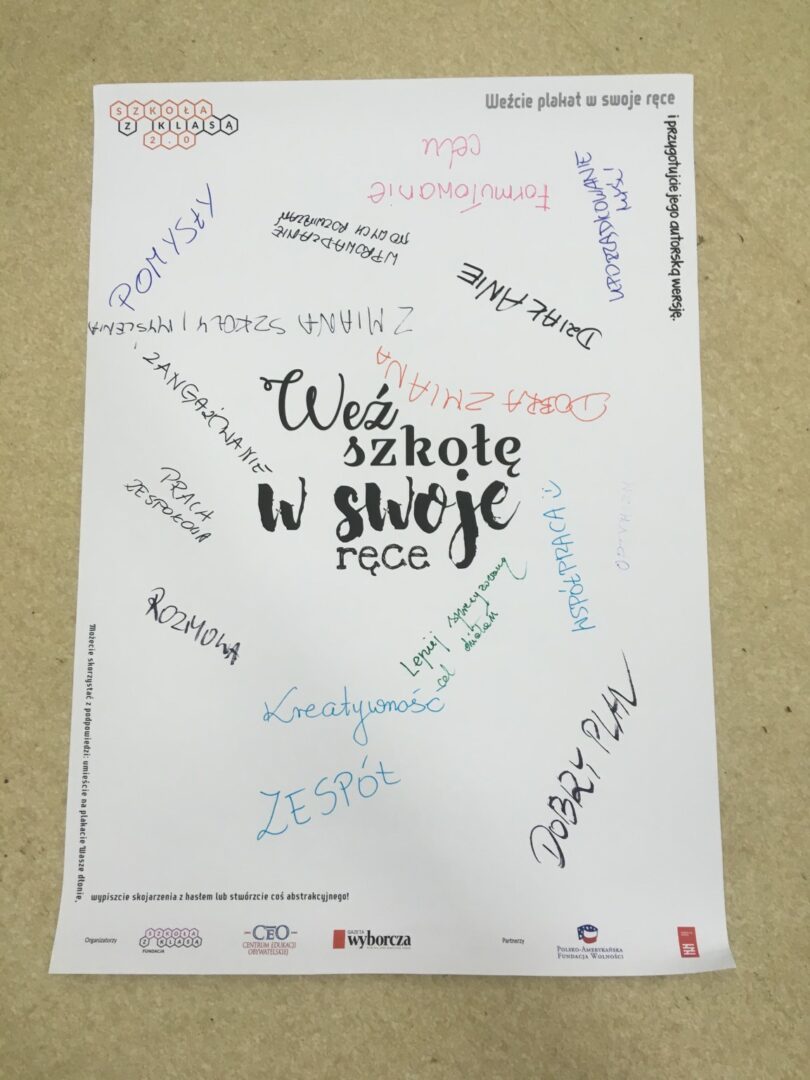 SZKOŁA
Z KLASĄ
2.0
Weźcie plakat w swoje ręce
i przygotujcie jego autorską wersję.
Formułowanie
celu
UPORZĄDKOWANIE
MYŚLI
POMYSŁY
WPROWADZANIE
NOWYCH ROZWIĄZAŃ
DZIAŁANIE
ZMIANA SZKOŁY I MYŚLENIA
DOBRA ZMIANA
ZANGAŻOWANIE
Weź
szkołę
w swoje
ręce
PRACA
ZESPOŁOWA
WSPÓŁPRACA :)
Lepiej sprecyzowany
cel działań
ROZMOWA
Kreatywność
ZESPÓŁ
DOBRY PLAN
Możecie skorzystać z podpowiedzi: umieście na plakacie Wasze dłonie,
wypiszcie skojarzenia z hasłem lub stwórzcie coś abstrakcyjnego!
Organizatorzy
SZKOŁA
Z KLASĄ
FUNDACJA
CEO
CENTRUM EDUKACJI
OBYWATELSKIEJ
GAZETA
wyborcza
Partnerzy
POLSKO-AMERYKAŃSKA
FUNDACJA WOLNOŚCI